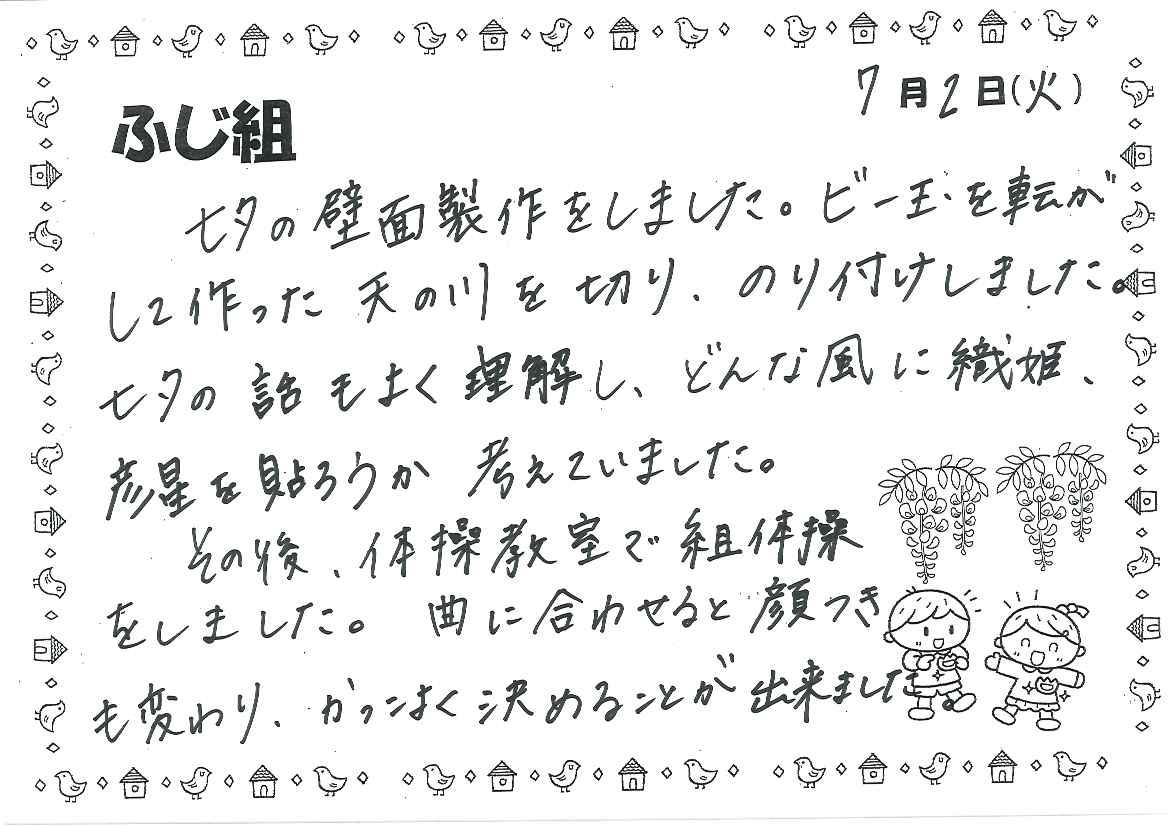 7月2日(火)
ふじ組
七夕の壁面製作をしました。ビー玉を転が
して作った天の川を切り、のり付けしました。
七夕の話もよく理解し、どんな風に織姫、
彦星を貼ろうか考えていました。
その後、体操教室で組体操
をしました。曲に合わせると顔つき
も変わり、かっこよく決めることが出来ました。